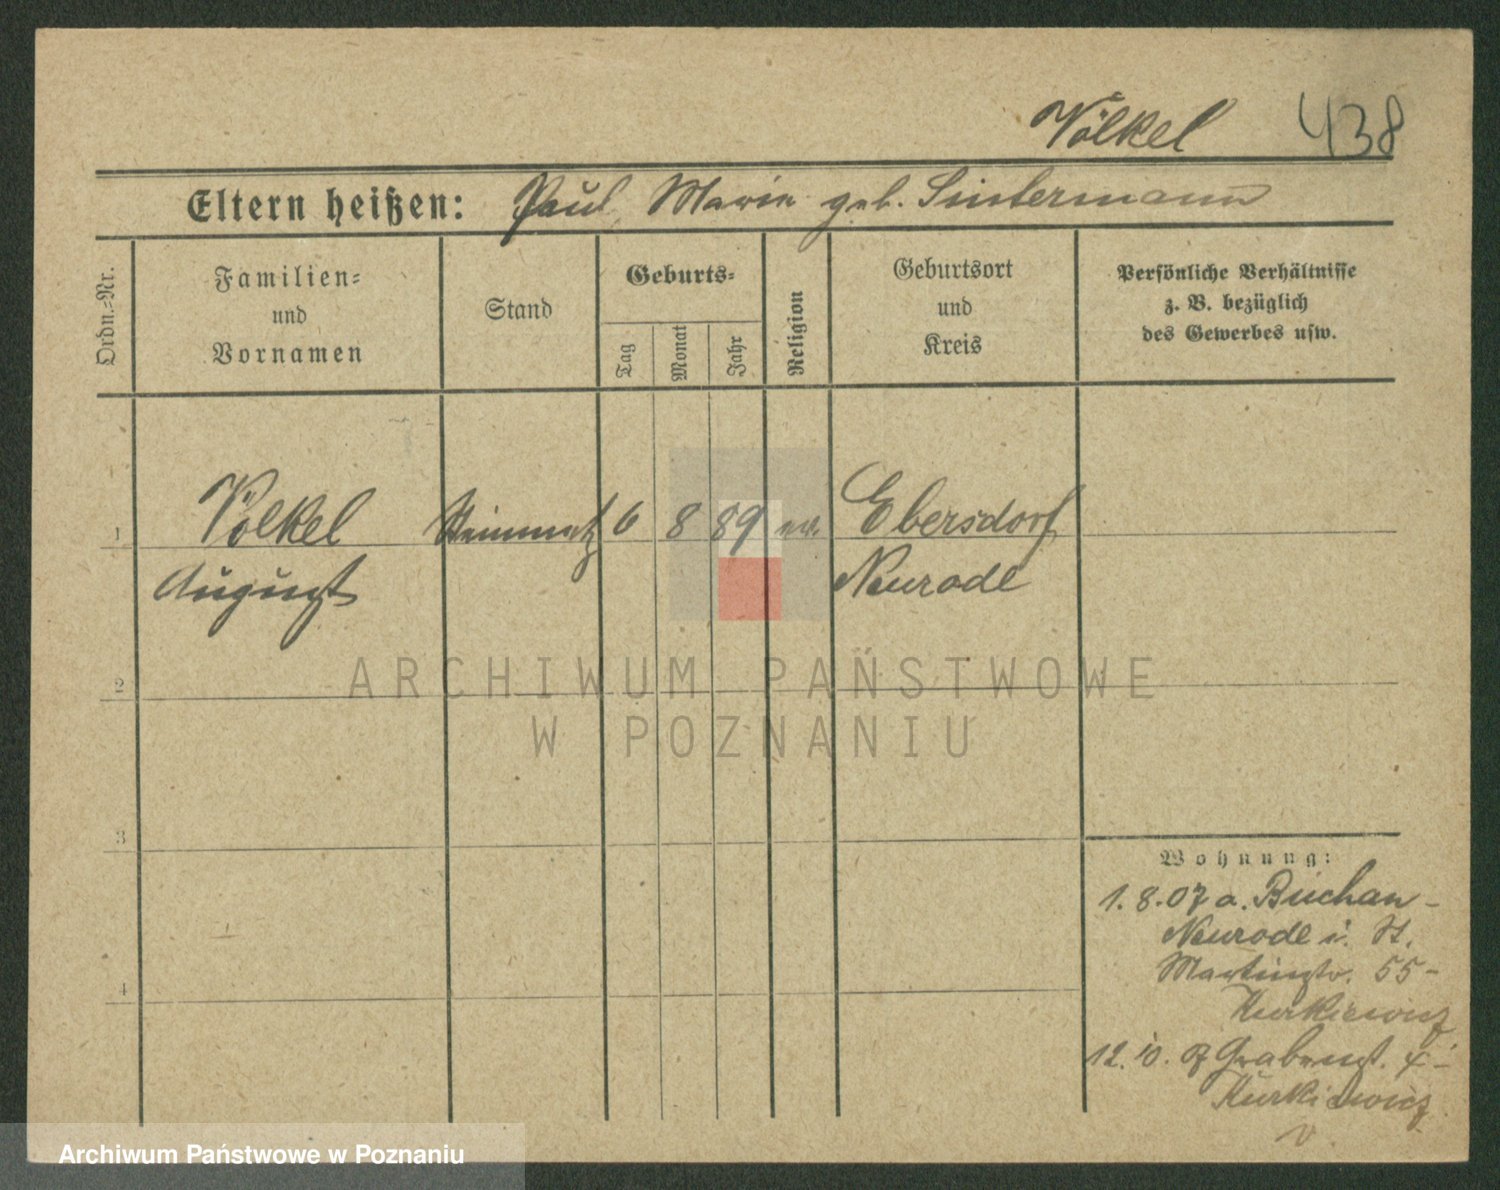 Völkel 438
Eltern heißen: Paul, Marie geb. Sintermann
Ordn.-Nr.
Familien-
und
Vornamen
Stand
Geburts-
Tag
Monat
Jahr
Religion
Geburtsort
und
Kreis
Persönliche Verhältnisse
z. B. bezüglich
des Gewerbes usw.
1 Völkel Steinmetz 6 8 89 ev. Ebersdorf
August Neurode
2
3
4
Wohnung:
1. 8. 07 a. Buchau-
Neurode i. H.
Martinstr. 55-
Kurkiewicz
12. 10. 07 Grabenst. 4-
Kurkiewicz
ARCHIWUM PAŃSTWOWE
W POZNANIU
Archiwum Państwowe w Poznaniu